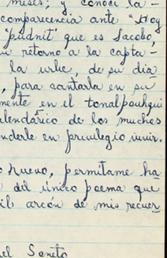 meses; y conocí la
comparecencia ante "Hoy
que es Jacobo,
un retorno a la
la urbe, de su día
, para cantarla en su
mente en el tonalpouhqui
calendárico de los muchos
enderle en privilegio vivir.
nuevo, permítame ha
del único poema que
arcón de mis recuer
el Soneto